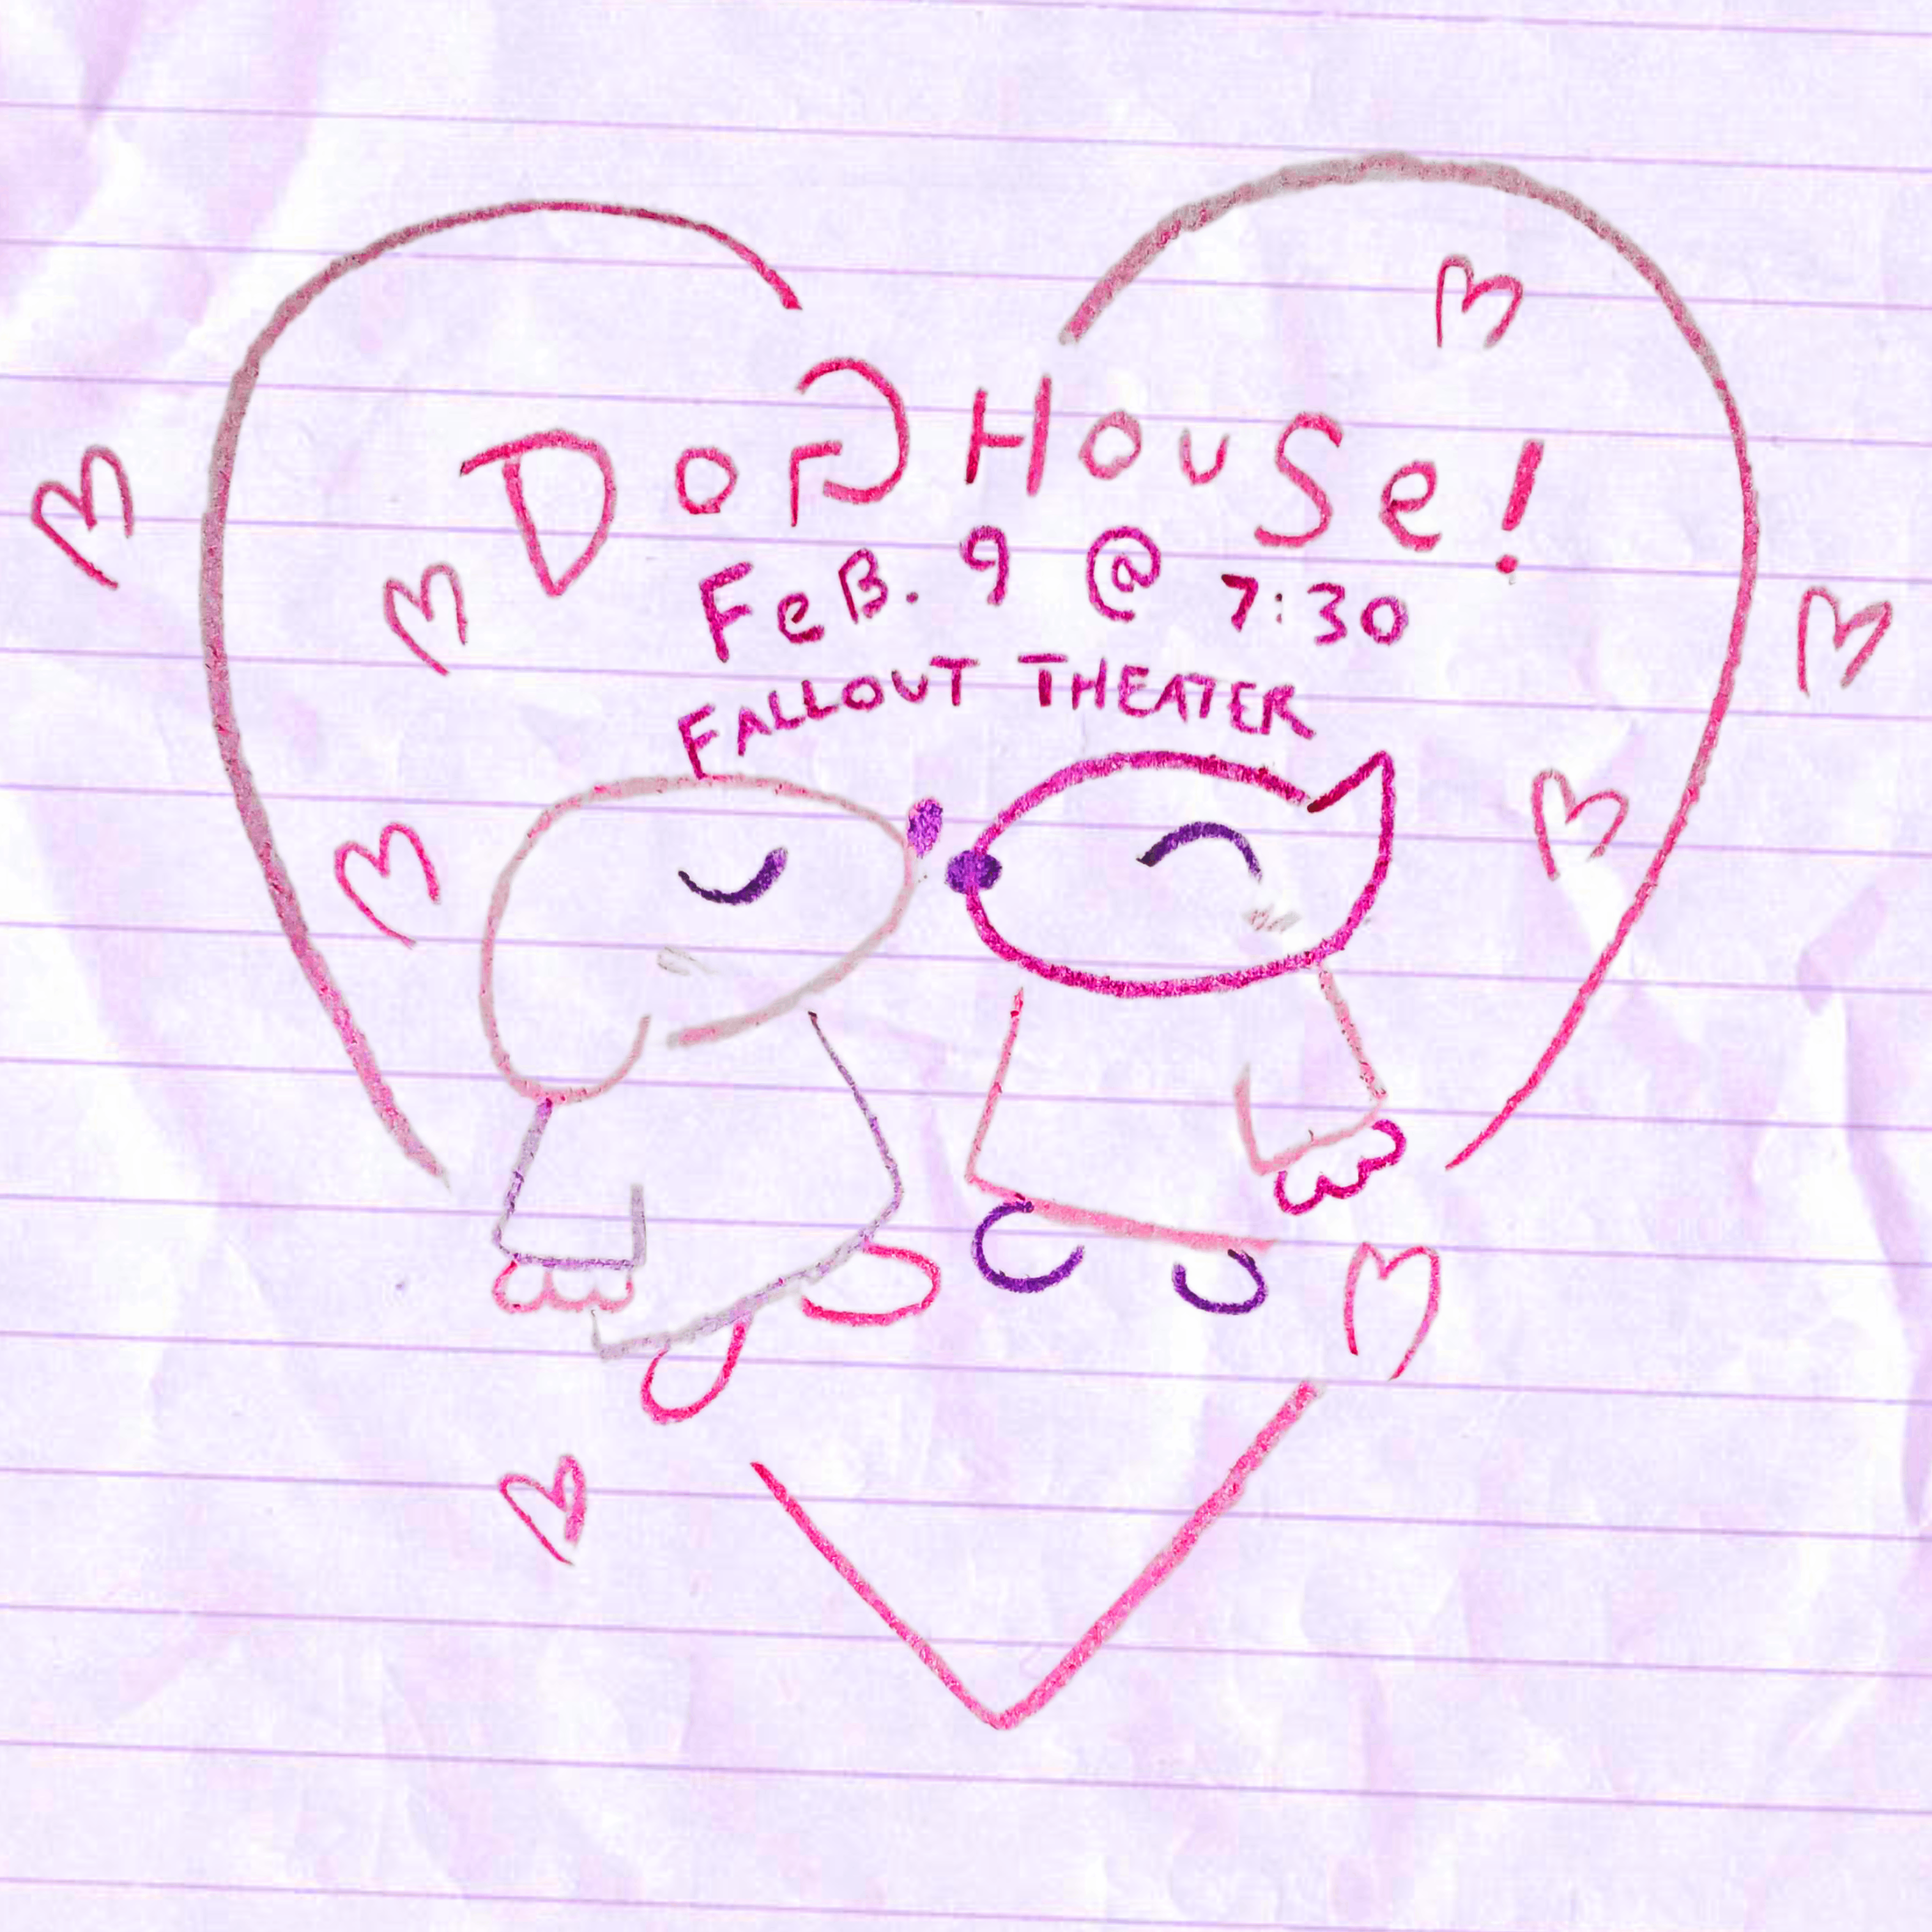 DoG HouSe!
FeB. 9 @ 7:30
FALLOUT THEATER